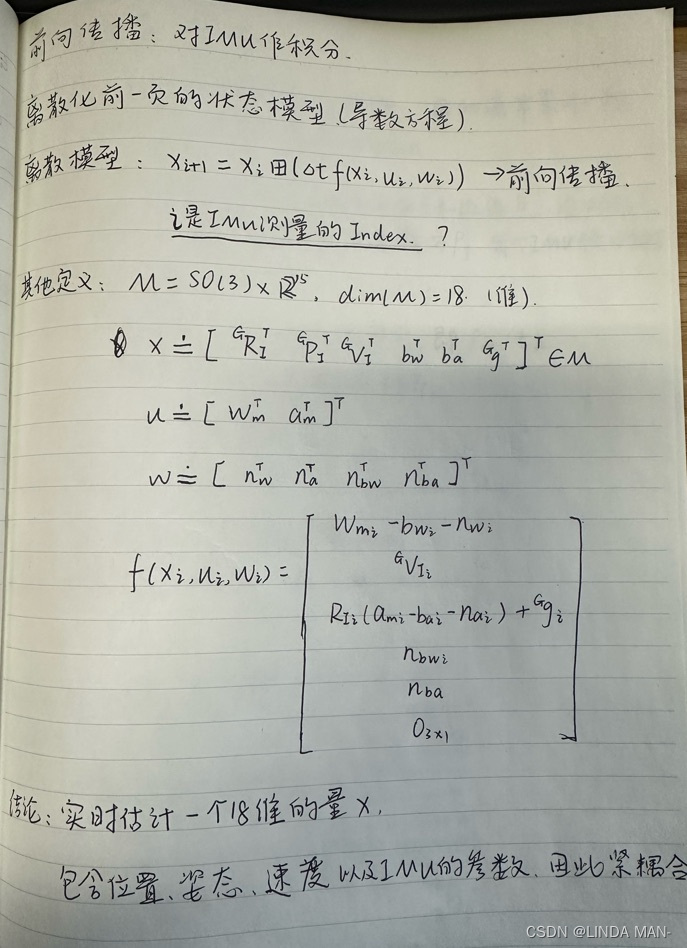 前向传播：对IMU作积分.
离散化前一页的状态模型（导数方程）.
离散模型： x_{i+1} = x_i ⊞ (Δt f(x_i, u_i, w_i)) →前向传播.
i是IMU测量的Index. ?
其他定义： M = SO(3) × ℝ^{15}, dim(M) = 18. (维).
x ≐ [ ^GR_I^T ^GP_I^T ^GV_I^T b_w^T b_a^T ^Gg^T ]^T ∈ M
u ≐ [ w_m^T a_m^T ]^T
w ≐ [ n_w^T n_a^T n_{bw}^T n_{ba}^T ]^T
f(x_i, u_i, w_i) =
w_{mi} - b_{wi} - n_{wi}
^GV_{Ii}
R_{Ii}(a_{mi} - b_{ai} - n_{ai}) + ^Gg_i
n_{bwi}
n_{ba}
0_{3×1}
结论：实时估计一个18维的量x,
包含位置、姿态、速度以及IMU的参数. 因此紧耦合
CSDN @LINDA MAN-